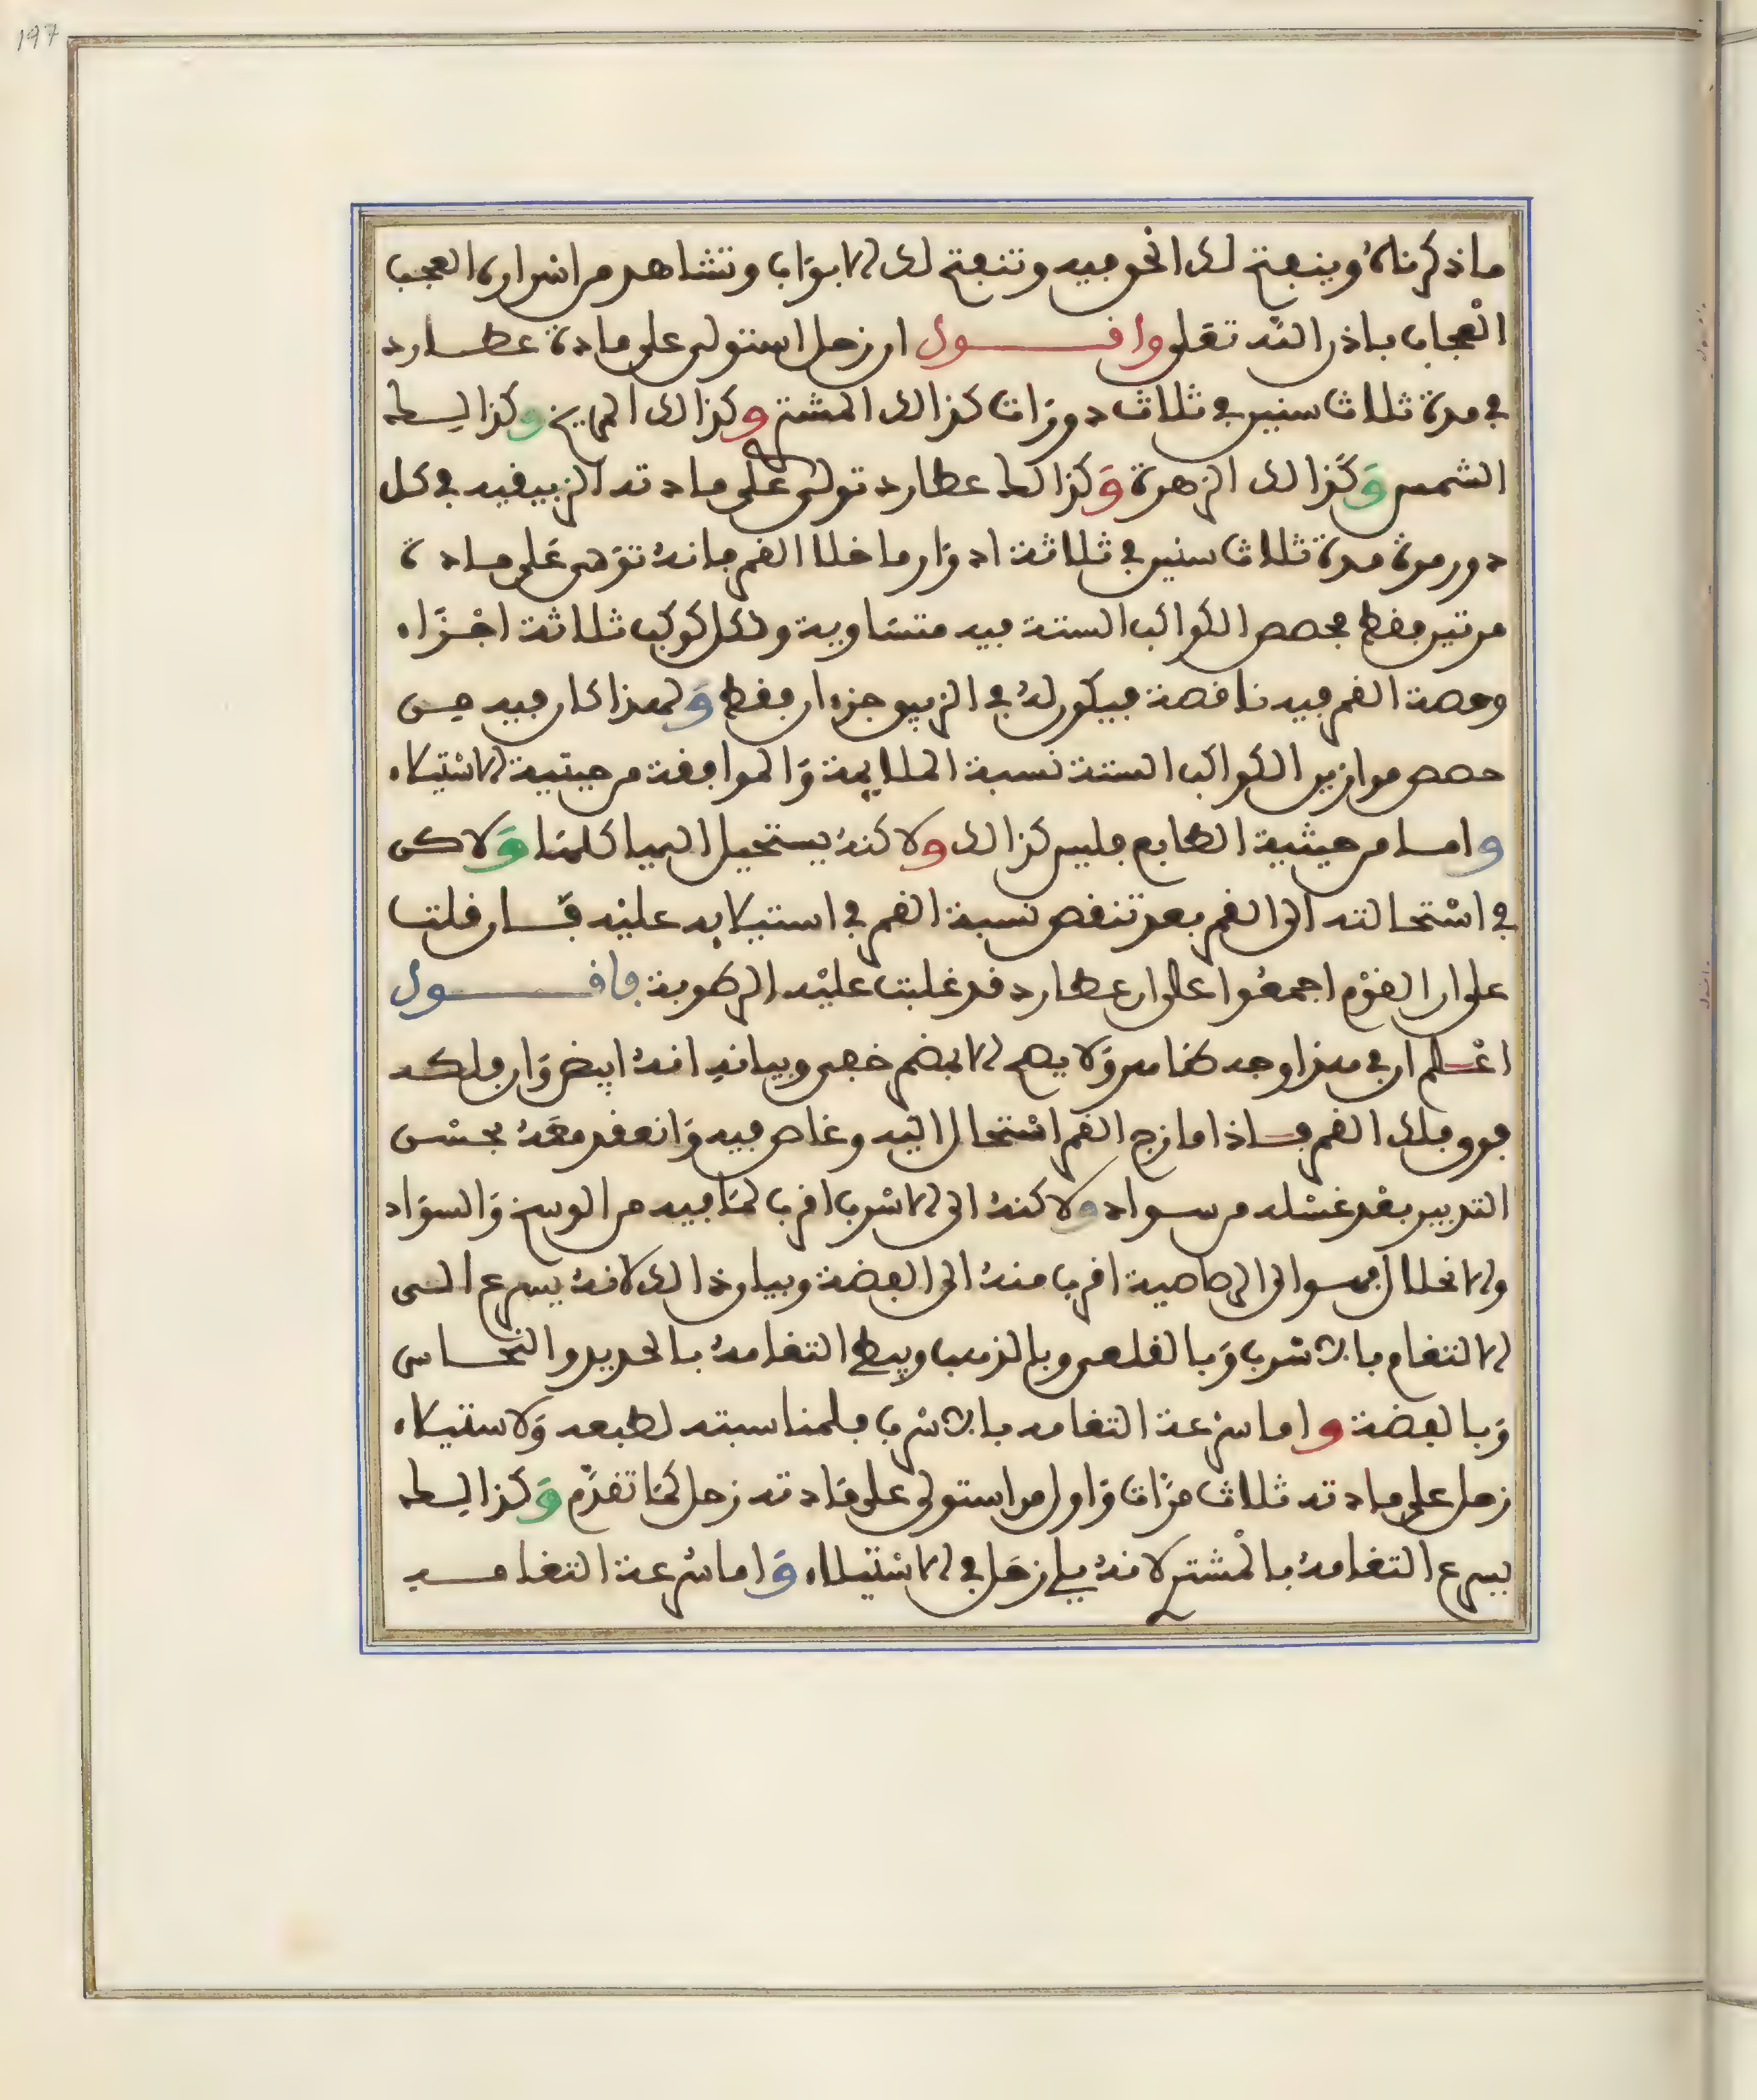 197
ما ذكرناه وينفتح لك الحق فيه وتنفتح لك الابواب وتشاهد من اسراره العجب
العجاب باذن الله تعلى واقول ان زحل استولى على مادة عطارد
في مدة ثلاث سنين في ثلاث دورات كذالك المشتري وكذالك المريخ وكذالك
الشمس وكذالك الزهرة وكذالك عطارد تولى على مادته الزيبقيه في كل
دور مرة مدة ثلاث سنين في ثلاثة ادوار ما خلا القمر فانه على مادة
مرتين فقط فحصص الكواكب الستة فيه متساوية ولكل كوكب ثلاثة اجزاء
وحصة القمر فيه ناقصة فيكون له في الزيبق جزءان فقط ولهذا كان فيه من
حصص موازين الكواكب الستة نسبة الملايمة والموافقة من حيثية الاستيلاء
واما من حيثية الطابع فليس كذالك ولاكنه يستحيل اليها كلها ولاكن
في استحالته الى القمر بعد تنقص نسبة القمر في استيلايه عليه فان قلت
على ان القوم اجمعوا على ان عطارد قد غلبت عليه الرطوبة فاقول
اعلم ان في هذا وجه ظاهر ولا يصح الا بفهم خفي وبيانه انه ابيض وان فلكه
فوق فلك القمر فاذا مازج القمر استحال اليه وغاص فيه وانعقد معه بحسن
التدبير بعد غسله من سواده ولاكنه الى الاسرب اقرب لما فيه من الوسخ والسواد
والانحلال فهو الى الرصاصية اقرب منه الى الفضة وبيان ذالك لانه يسرع الى
الالتغام بالاسرب وبالقلعي وبالذهب ويبطي التغامه بالحديد والنحاس
وبالفضة واما سرعة التغامه بالاسرب فلمناسبته لطبعه ولاستيلاء
زحل على مادته ثلاث مرات واول من استولى على مادته زحل كما تقدم وكذالك
يسرع التغامه بالمشتري لانه يلي زحل في الاستيلاء واما سرعة التغامه